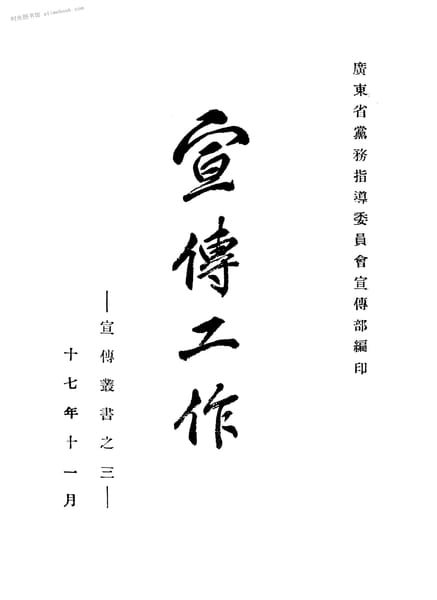 时光图书馆 atimebook.com
廣東省黨務指導委員會宣傳部編印
宣傳工作
—宣傳叢書之三—
十七年十一月